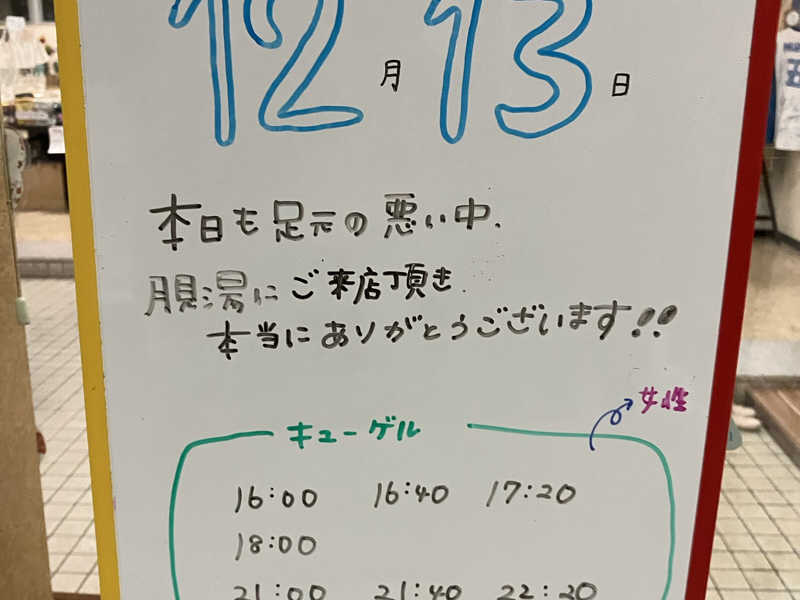 12月13日
本日も足元の悪い中、
湯にご来店頂き
本当にありがとうございます!!
女性
キューゲル
16:00 16:40 17:20
18:00
21:00 21:40 22:20